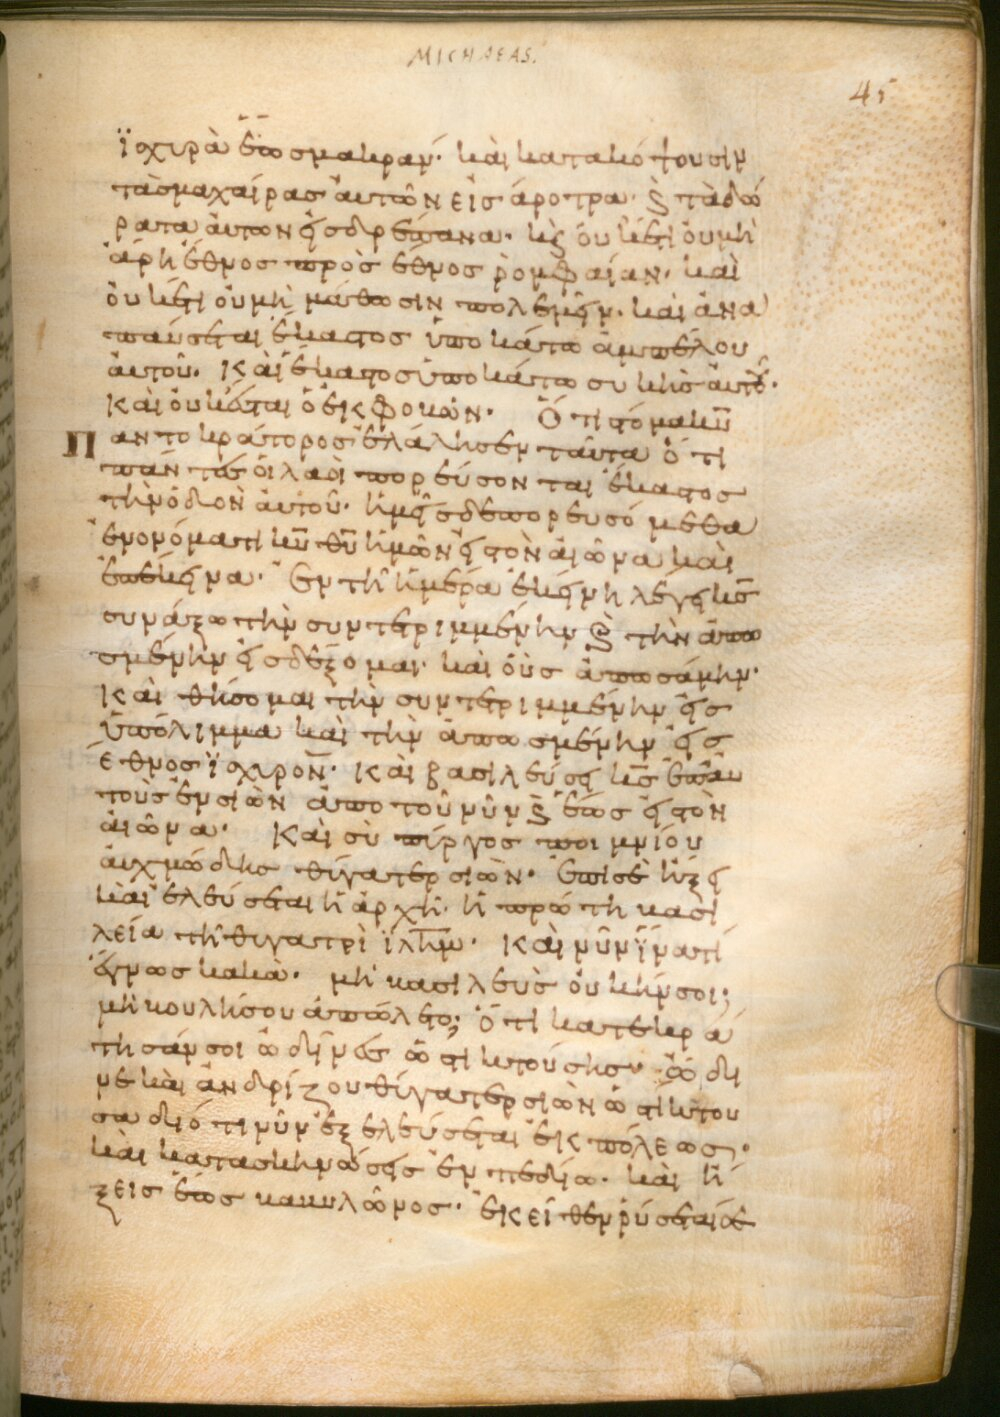 MICHAEAS.
45
ϊσχυρὰ ἕως μακράν· καὶ κατακόψουσιν
τὰσμαχαίρασ ἀυτῶν εἰσ ἄροτρα· ϗ τὰδό
ρατα ἀυτων ἐισδρέπανα· κϗ ὀυκέτι ὀυμὴ
ἄρη ἔθνοσ πρὸσ ἔθνοσ ῥομφαίαν· καὶ
ὀυκέτι ὀυμὴ μάθωσιν πολεμεῖν· καὶ ἀνα
παύσεται ἕκαστοσ ὑποκάτω ἀμπέλου
ἀυτοῦ· Καὶ ἕκαστοσ ὑποκάτω συκῆσ ἀυτοῦ·
Καὶ ὀυκέσται ὁ ἐκφοβῶν· Ὅτι στόμα κ̅υ̅
Παντοκράτοροσ ἐλάλησεν ταῦτα ὅτι
πάντεσ ὁιλαοὶ πορεύσονται ἕκαστοσ
τὴνὁδὸν ἀυτοῦ· ἡμεῖσδὲπορευσόμεθα
ἐνονόματι κ̅υ̅ θ̅υ̅ ἡμῶν ἐιστὸν ἀιῶνα καὶ
ἐπέκεινα· Ἐν τῆ ἡμέρα ἐκείνη λέγει κ̅ς̅
συνάξω τὴν συντετριμμένην ϗ τὴν ἀπω
σμένην ἐισδέξομαι· καὶ ὁὺσ ἀπωσάμην·
Καὶ θήσομαι τὴν συντετριμμένην ἐισ
ὑπόλιμμα καὶ τὴν ἀπωσμένην ἐισ
ἔθνοσ ἰσχυρον̅· Καὶ βασιλεύσει κ̅ς̅ ἐπ ἀυ
τοὺσ ἐν σιὼν ἀπο τοῦ νῦν ϗ ἕωσ ἐιστὸν
ἀιῶνα· Καὶ σὺ πύργοσ ποιμνίου
ἀυχμώδησ θύγατερ σιὼν· ἐπὶσὲ ἥξει
καὶ ἐλεύσεται ἡ ἀρχὴ· ἡ πρώτη βασι
λεία τῆ θυγατρὶ ϊλ̅ημ̅· Καὶ νῦν ϊνατί
ἔγνωσ κακὰ· μὴ βασιλεὺσ ὀυκ ἦνσοι;
μὴ βουλήσου ἀπώλετο; Ὅτι κατεκρά
τησάνσοι ὠδῖνεσ ὡσ τικτούσησ· ὤδι
νε καὶ ἀνδρίζου θύγατερ σιὼν ὡσ τίκτου
σα διότι νῦν ἐξελεύσεται ἐκ πόλεωσ·
καὶ κατασκηνώσεισ ἐν πεδίω· καὶ ἥ
ξεισ ἕωσ βαβυλῶνοσ· ἐκεῖθεν ῥύσεταί σε